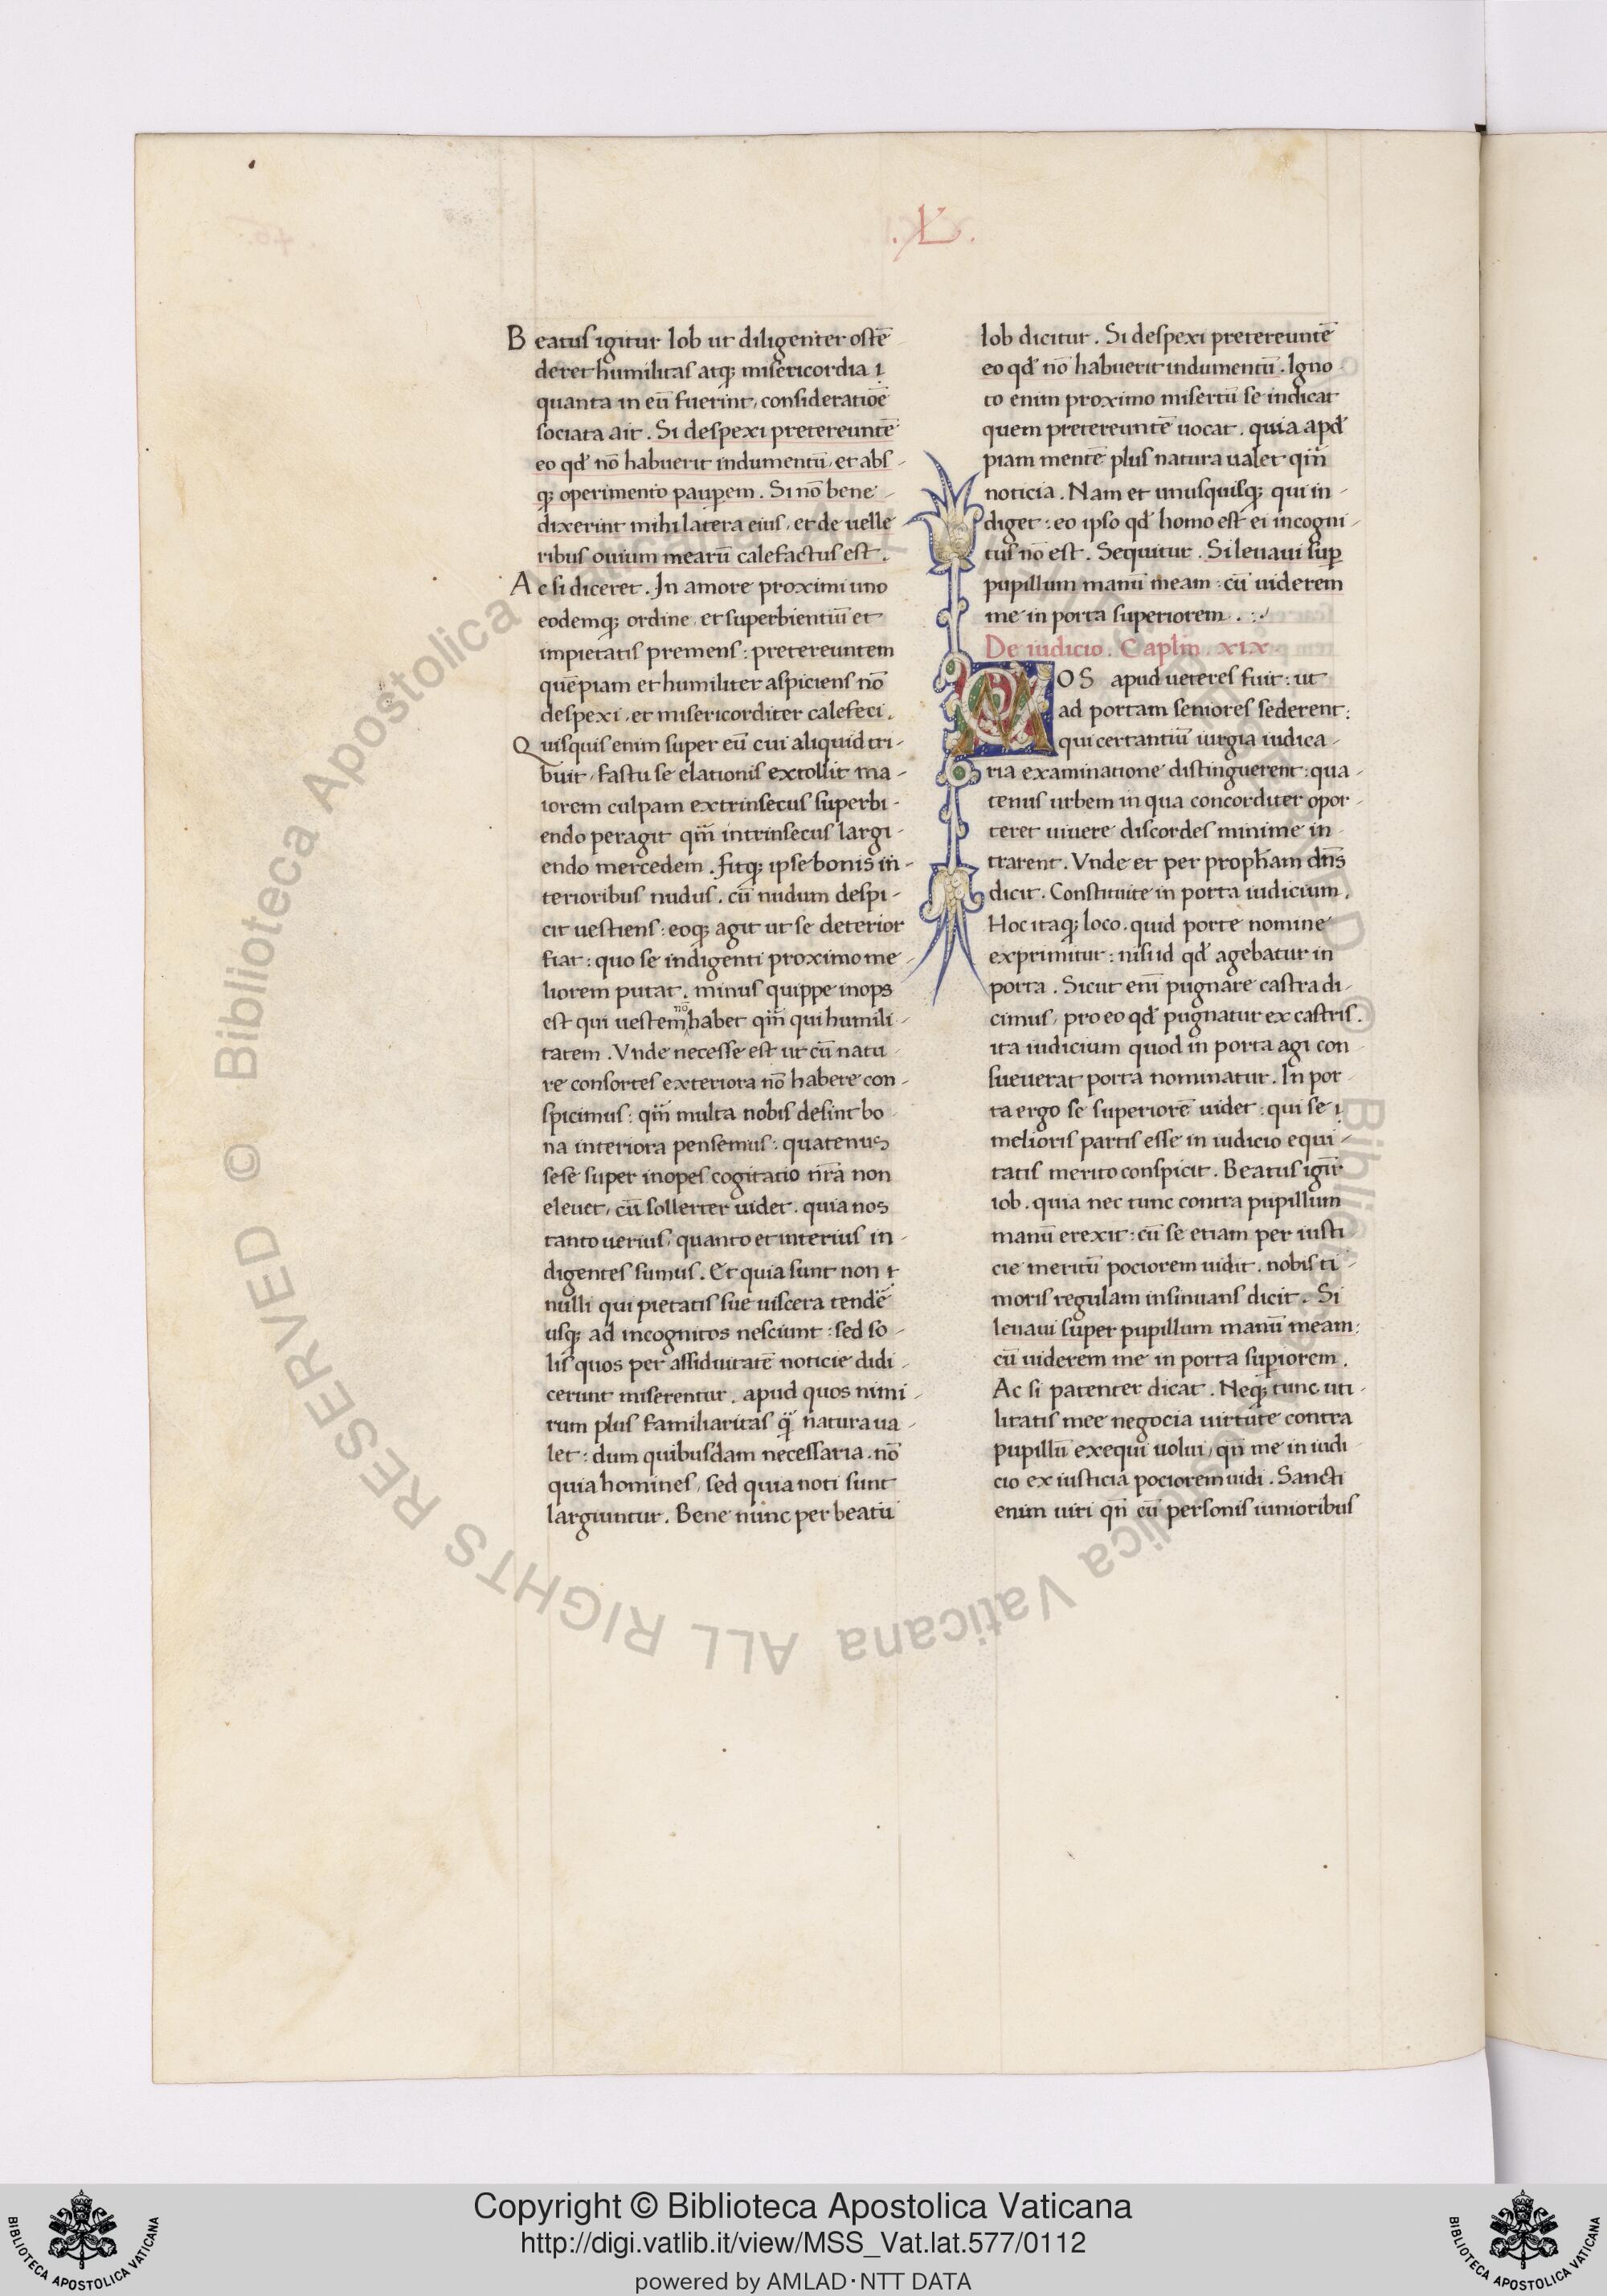 .XL.
Beatus igitur Iob ut diligenter ostē
deret humilitas atq; misericordia i
quanta in eū fuerint, consideratiōe
sociata ait. Si despexi pretereuntē
eo qđ nō habuerit indumentū, et abs-
q; operimento pauꝑem. Si nō bene-
dixerint mihi latera eius, et de uelle
ribus ouium mearū calefactus est.
Ac si diceret. In amore proximi uno
eodemq; ordine, et superbientiū et
impietatis premens: pretereuntem
quēpiam et humiliter aspiciens nō
despexi, et misericorditer calefeci.
Quisquis enim super eū cui aliquid tri-
buit, fastu se elationis extollit ma-
iorem culpam extrinsecus superbi-
endo peragit qm̄ intrinsecus largi-
endo mercedem. fitq; ipse bonis in-
terioribus nudus, cū nudum despi-
cit uestiens: eoq; agit ut se deterior
fiat: quo se indigenti proximo me-
liorem putat. minus quippe inops
est qui uestem nō habet qm̄ qui humili-
tatem. Vnde necesse est ut cū natu-
re consortes exteriora nō habere con-
spicimus: qm̄ multa nobis desint bo
na interiora pensemus: quatenus
sese super inopes cogitatio nr̄a non
eleuet, cū sollerter uidet, quia nos
tanto uerius, quanto et interius in-
digentes sumus. Et quia sunt non
nulli qui pietatis sue uiscera tendē
usq; ad incognitos nesciunt: sed so-
lis quos per assiduitatē noticie didi-
cerunt miserentur. apud quos nimi-
rum plus familiaritas q̄ natura ua-
let: dum quibusdam necessaria, nō
quia homines, sed quia noti sunt
largiuntur. Bene nunc per beatū
Iob dicitur. Si despexi pretereuntē
eo qđ nō habuerit indumentū. Igno-
to enim proximo misertū se indicat
quem pretereuntē uocat. quia apđ
piam mentē plus natura ualet qm̄
noticia. Nam et unusquisq; qui in-
diget: eo ipso qđ homo est ei incogni-
tus nō est. Sequitur. Si leuaui suꝑ
pupillum manū meam: cū uiderem
me in porta superiorem.
De iudicio. Capl̄m .XIX.
MOS apud ueteres fuit: ut
ad portam seniores sederent:
qui certantiū iurgia iudica-
ria examinatione distinguerent: qua-
tenus urbem in qua concorditer opor-
teret uiuere discordes minime in-
trarent. Vnde et per proph̄am dn̄s
dicit. Constituite in porta iudicium.
Hoc itaq; loco, quid porte nomine
exprimitur: nisi id qđ agebatur in
porta. Sicut enī pugnare castra di-
cimus, pro eo qđ pugnatur ex castris.
ita iudicium quod in porta agi con
sueuerat porta nominatur. In por-
ta ergo se superiorē uidet: qui se i
melioris partis esse in iudicio equi-
tatis merito conspicit. Beatus igit̄
iob, quia nec tunc contra pupillum
manū erexit: cū se etiam per iusti
cie meritū pociorem uidit, nobis ti-
moris regulam insinuans dicit. Si
leuaui super pupillum manū meam:
cū uiderem me in porta suꝑiorem.
Ac si patenter dicat. Neq; tunc uti-
litatis mee negocia uirtute contra
pupillū exequi uolui, qn̄ me in iudi-
cio ex iusticia pociorem uidi. Sancti
enim uiri qn̄ cū personis iunioribus
© Biblioteca Apostolica Vaticana ALL RIGHTS RESERVED
Copyright © Biblioteca Apostolica Vaticana
http://digi.vatlib.it/view/MSS_Vat.lat.577/0112
powered by AMLAD·NTT DATA
BIBLIOTECA APOSTOLICA VATICANA
BIBLIOTECA APOSTOLICA VATICANA